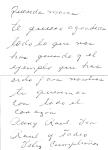 Querida mama
te quiero agradecer
todo lo que nos
has ganado y el
ejemplo que has
sido para nosotros
te queremos
con todo el
corazon
Raul y Fabio
Feliz Cumpleaños